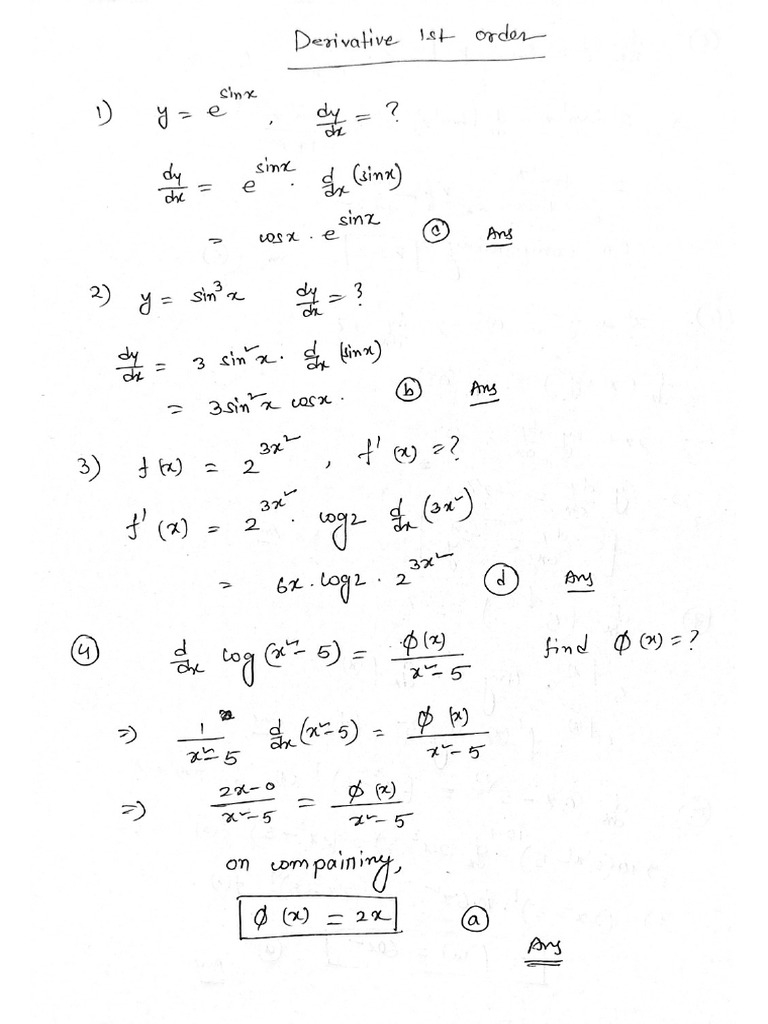 Derivative 1st order
1) y = e^sinx, dy/dx = ?
dy/dx = e^sinx · d/dx (sinx)
= cosx · e^sinx (c) Ans
2) y = sin³x dy/dx = ?
dy/dx = 3 sin²x · d/dx (sinx)
= 3sin²x cosx. (b) Ans
3) f(x) = 2^3x², f'(x) = ?
f'(x) = 2^3x² · log2 d/dx (3x²)
= 6x · log2 · 2^3x² (d) Ans
(4) d/dx log(x²-5) = ϕ(x)/x²-5 find ϕ(x) = ?
=) 1/x²-5 d/dx (x²-5) = ϕ(x)/x²-5
=) 2x-0/x²-5 = ϕ(x)/x²-5
on compaining,
ϕ(x) = 2x (a)
Ans